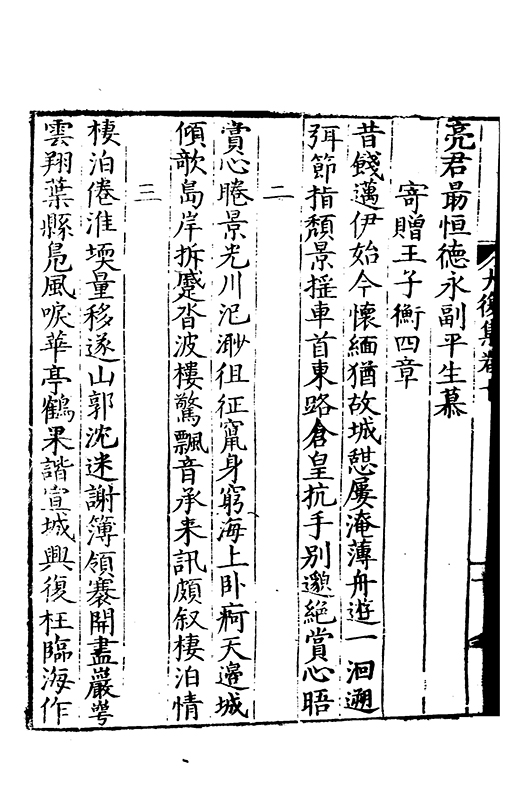 亮君最恒德永副平生慕
寄贈王子衡四章
昔餞邁伊始今懷緬猶故城憇屢淹薄舟遊一洄遡
弭節指頹景摇車首東路倉皇抗手别邈絶賞心晤
二
賞心睠景光川汜渺徂征竄身窮海上卧痾天邊城
傾欹島岸拆蹙沓波樓驚飄音承来訊頗叙棲泊情
三
棲泊倦淮堧量移遂山郭沈迷謝簿領褰開盡巖崿
雲翔葉縣鳬風唳華亭鶴果諧宣城興復枉臨海作
大復集卷十